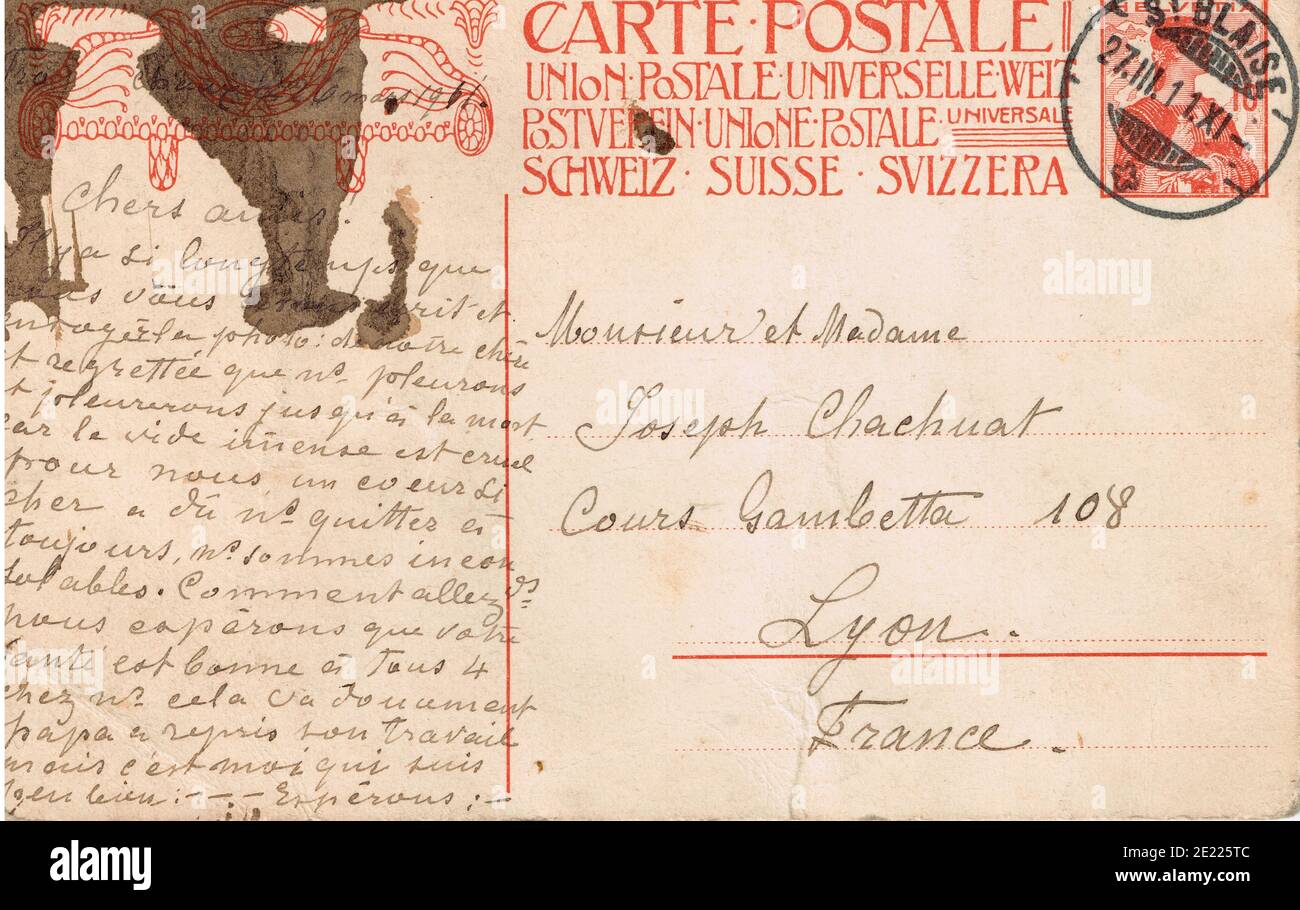 CARTE POSTALE
UNION·POSTALE·UNIVERSELLE·WELT
POSTVEREIN·UNIONE·POSTALE·UNIVERSALE
SCHWEIZ·SUISSE·SVIZZERA
HELVETIA
ST BLAISE
27.III.11.XI-
mars 1911.
Chers amis!
Il y a si longtemps que
vous écrit et
envoyer la photo: de notre chère
et regrettée que ns. pleurons
et pleurerons jusqu'à la mort
car le vide imense est cruel
pour nous, un coeur si
cher a dû ns quitter à
toujours, ns. sommes incon
solables. Comment allez vs
nous espérons que votre
santé est bonne à tous 4
chez ns. cela va doucement
papa a repris son travail
mais c'est moi qui suis
peu bien: -.- Espérons: -
Monsieur et Madame
Joseph Chachuat
Cours Gambetta 108
Lyon.
France.
alamy
a
alamy
Image ID: 2E225TC
www.alamy.com